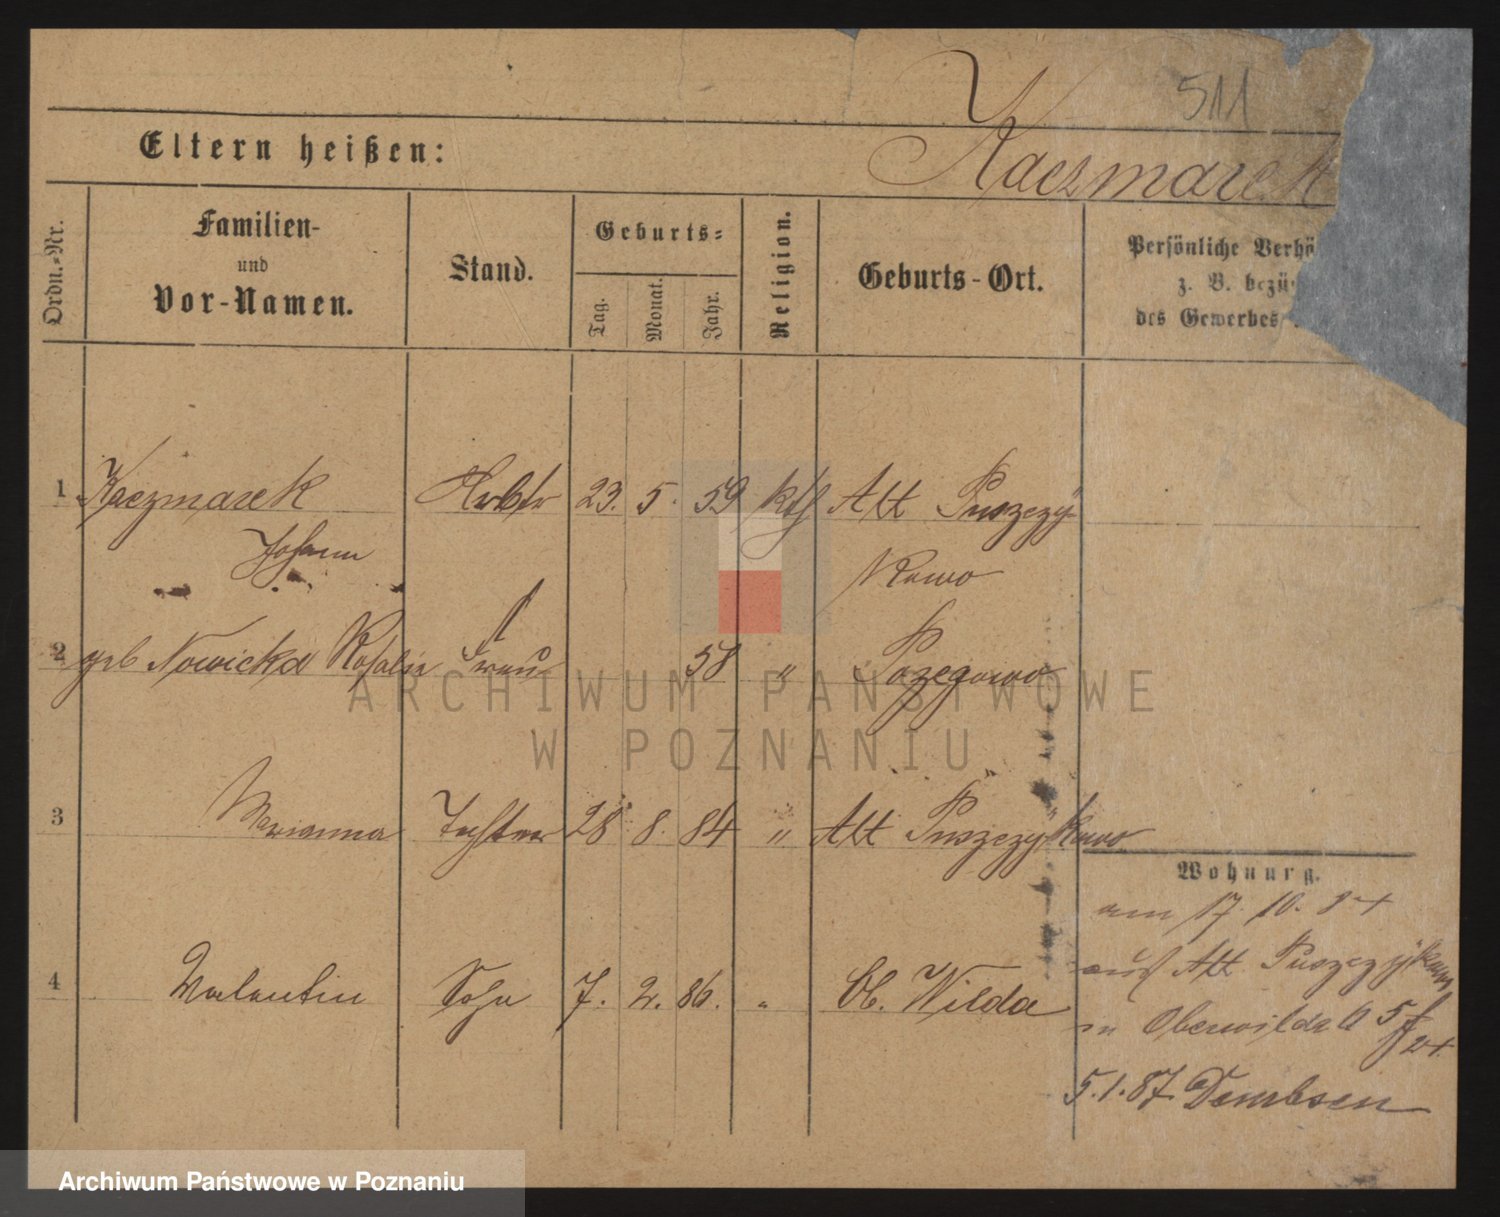 511
Kaczmarek
Eltern heißen:
Ordn.-Nr.
Familien-
und
Vor-Namen.
Stand.
Geburts-
Tag.
Monat.
Jahr.
Religion.
Geburts-Ort.
Persönliche Verhö
z. B. bezü
des Gewerbes
1 Kaczmarek Arbtr 23. 5. 59 kth Alt Puszczy
Johann kowo
2 geb Nowicka Rosalie Frau 58 " Pozegowo
3 Marianna Tochter 28 8. 84 " Alt Puszczykowo
4 Valentin Sohn 7. 2. 86. " Ob. Wilda
Wohnung.
am 17. 10. 84
aus Alt Puszczykowo
in Oberwilda
5.1.87. Dembsen
ARCHIWUM PAŃSTWOWE
W POZNANIU
Archiwum Państwowe w Poznaniu